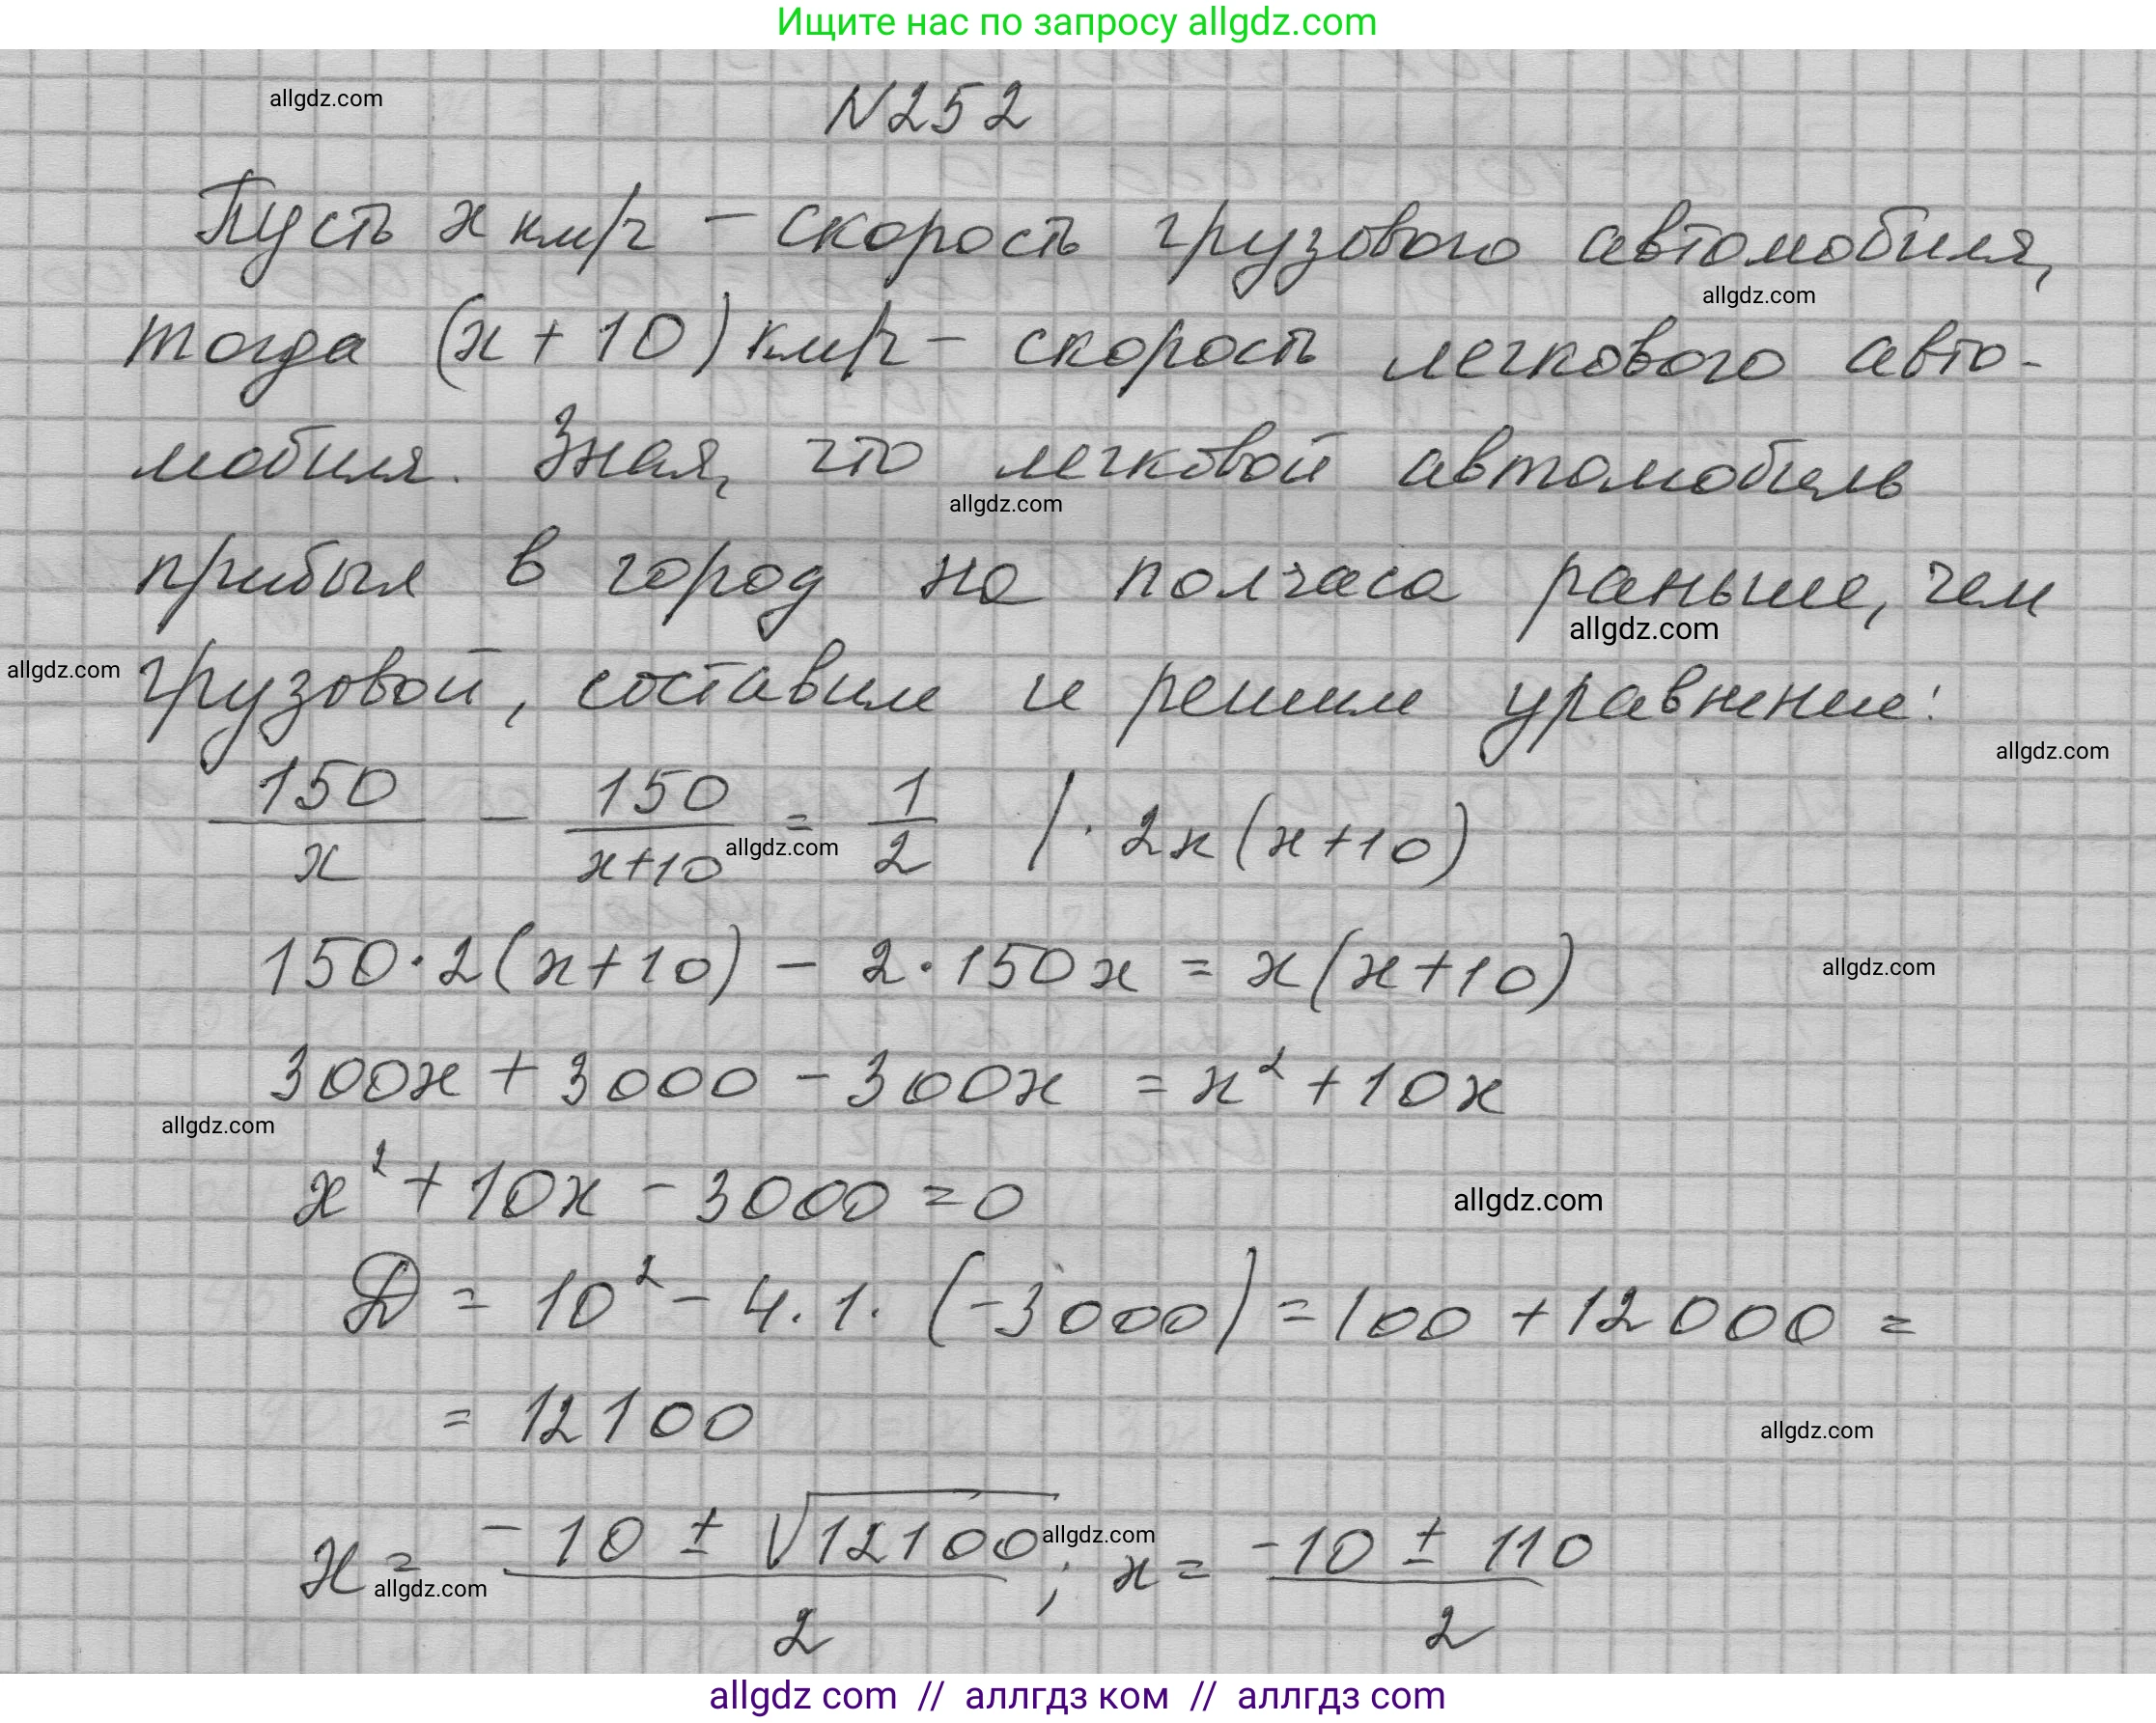 Ищите нас по запросу allgdz.com
allgdz.com
N252
Пусть x км/ч – скорость грузового автомобиля,
allgdz.com
тогда (x + 10) км/ч – скорость легкового авто-
мобиля. Зная, что легковой автомобиль
allgdz.com
прибыл в город на полчаса раньше, чем
allgdz.com
allgdz.com
грузовой, составим и решим уравнение:
allgdz.com
150/x – 150/(x+10) = 1/2 | · 2x(x+10)
allgdz.com
150·2(x+10) – 2·150x = x(x+10)
allgdz.com
300x + 3000 – 300x = x² + 10x
allgdz.com
x² + 10x – 3000 = 0
allgdz.com
D = 10² – 4·1·(–3000) = 100 + 12000 =
= 12100
allgdz.com
x = (–10 ± √12100)/2; x = (–10 ± 110)/2
allgdz.com
allgdz.com
allgdz com // аллгдз ком // аллгдз com